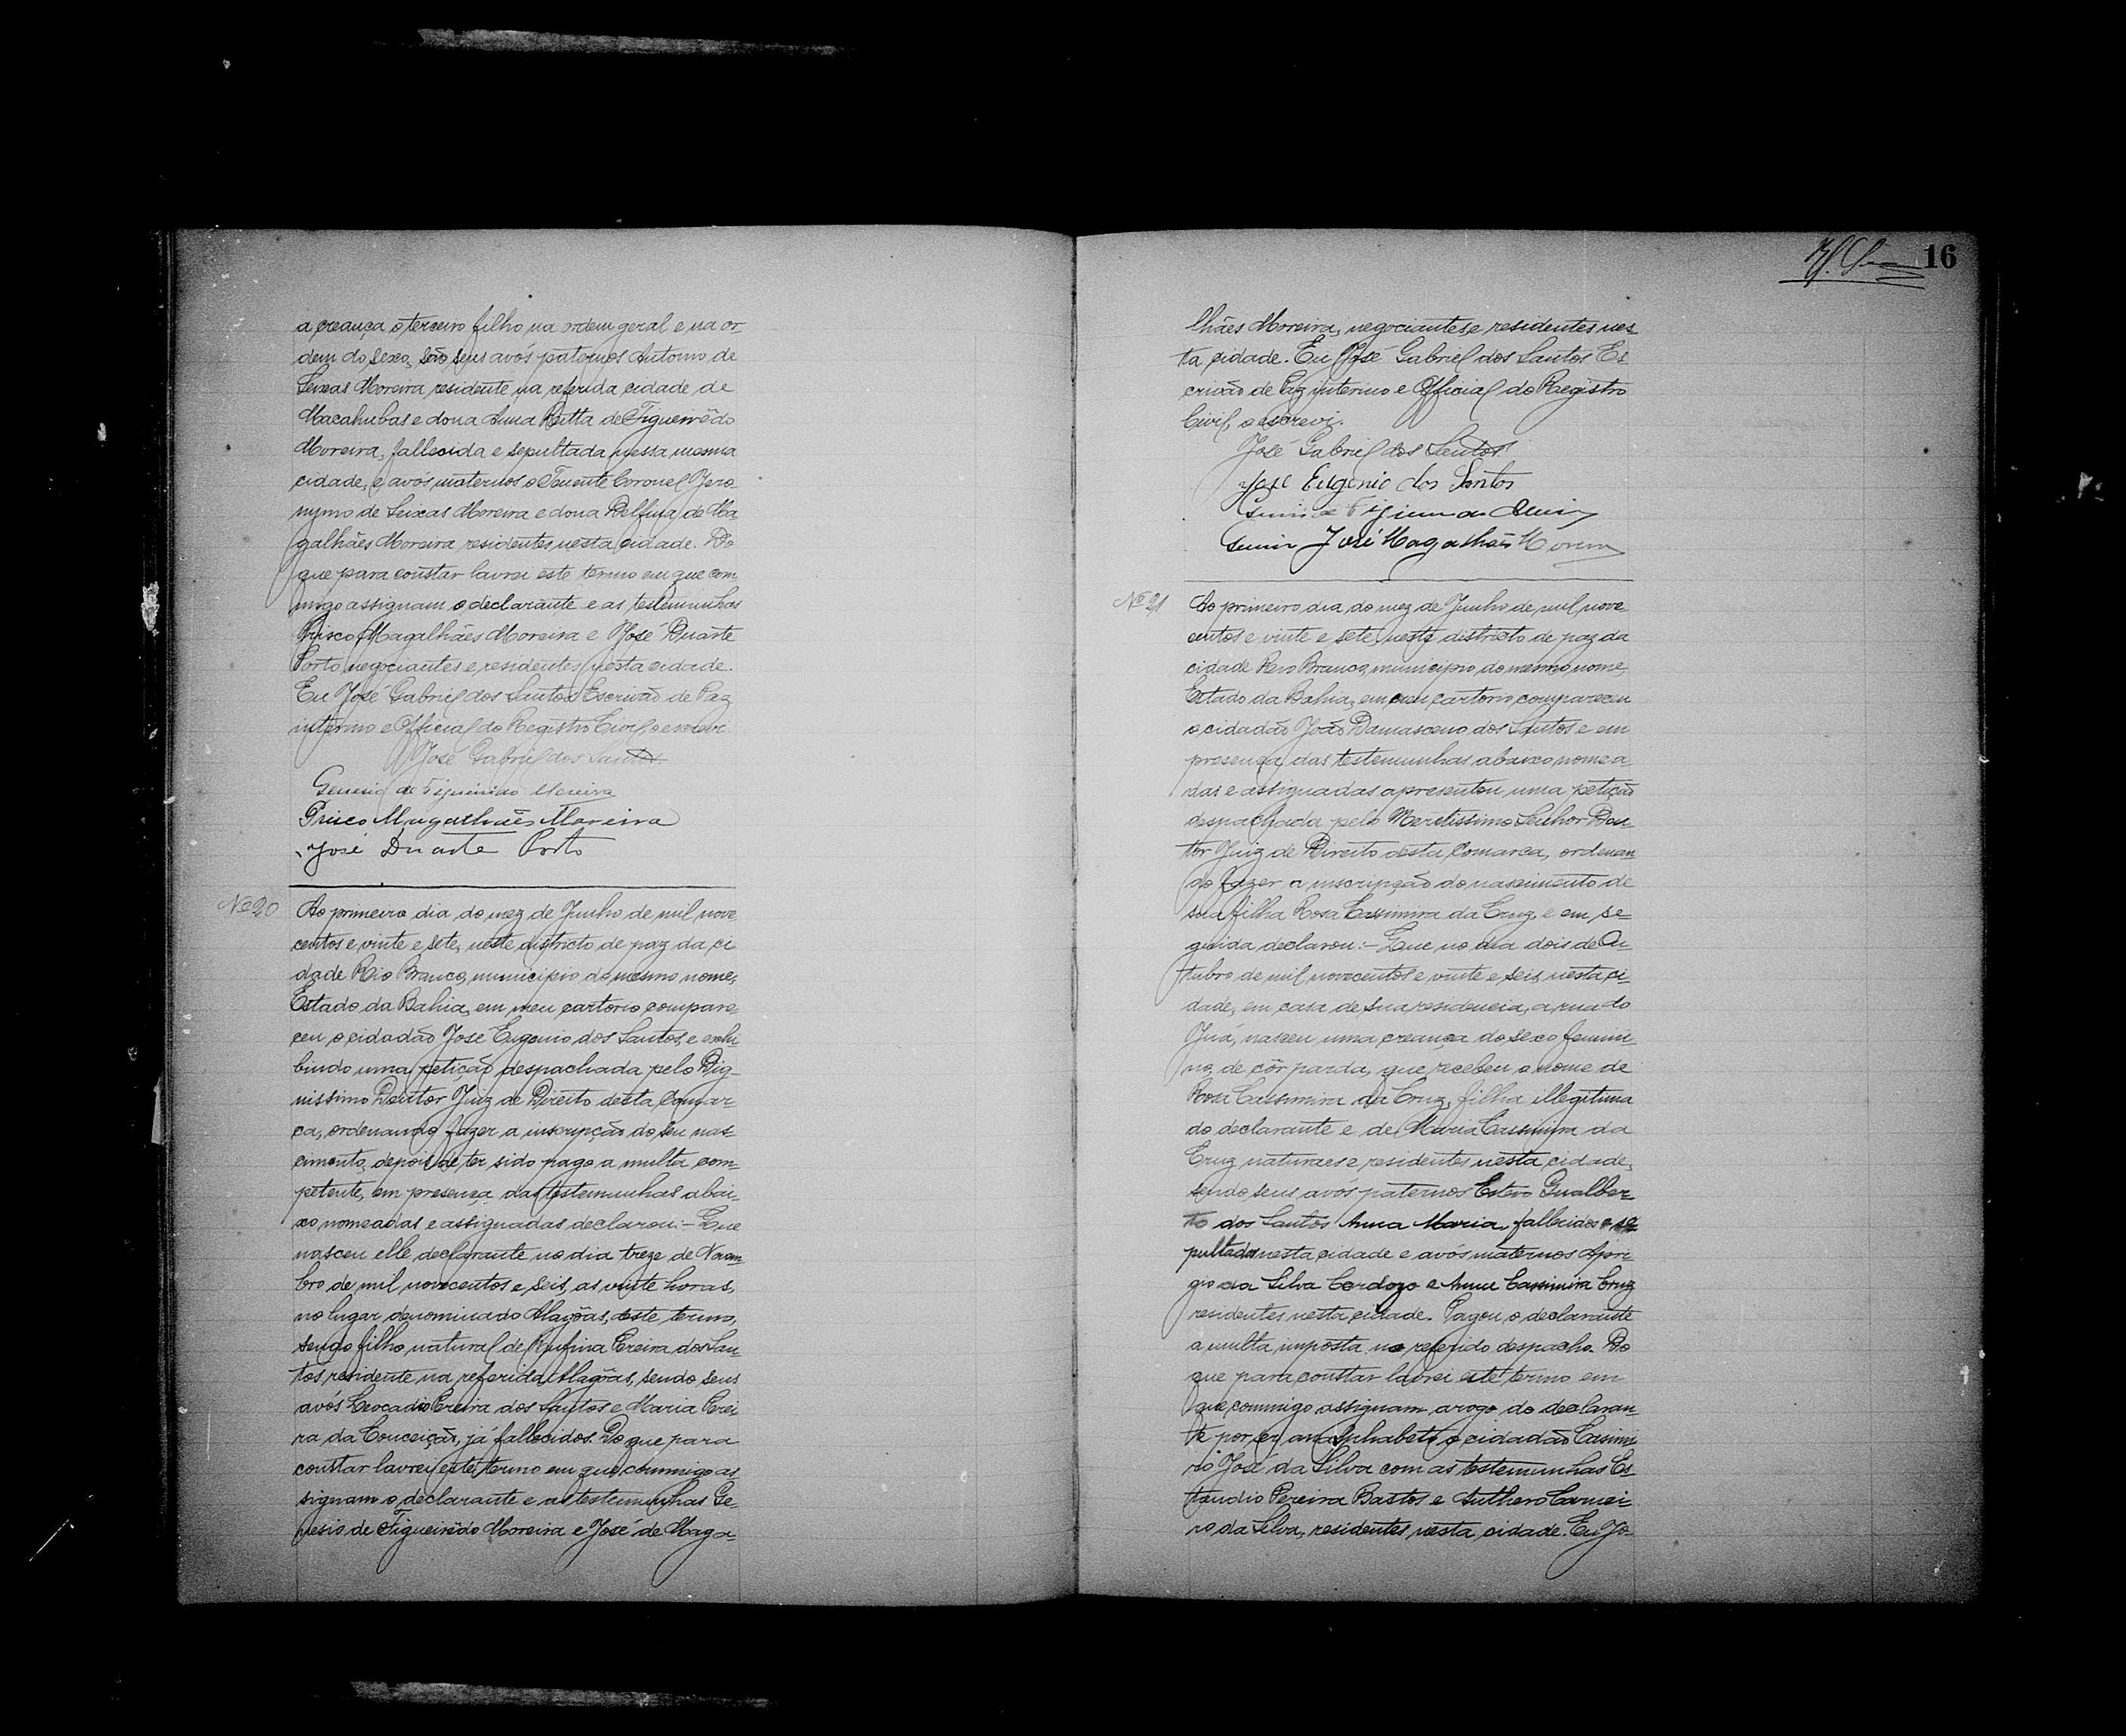 a creança o terceiro filho na ordem geral e na or
dem do sexo, são seus avós paternos Antonio de
Seixas Moreira residente na referida cidade de
Macahubas e dona Anna Ritta de Figueirêdo
Moreira, fallecida e sepultada nessa mesma
cidade, e avós maternos o Tenente Coronel Jero
nymo de Seixas Moreira e dona Delfina de Ma
galhães Moreira residentes nesta cidade. Do
que para constar lavrei este termo em que com
migo assignam o declarante e as testemunhas
Prisco Magalhães Moreira e José Duarte
Porto negociantes e residentes nesta cidade.
Eu José Gabriel dos Santos Escrivão de Paz
interino e Official do Registro Civil, o escrevi.
José Gabriel dos Santos
Genesio de Figueirêdo Moreira
Prisco Magalhães Moreira
José Duarte Porto
Nº 20
Ao primeiro dia do mez de Junho de mil nove
centos e vinte e sete, neste districto de paz da ci
dade Rio Branco, municipio do mesmo nome,
Estado da Bahia, em meu cartorio compare
ceu o cidadão José Eugenio dos Santos, e exhi
bindo uma petição despachada pelo Dig-
nissimo Doutor Juiz de Direito desta Comar-
ca, ordenando fazer a inscripção do seu nas-
cimento, depois de ter sido pago a multa com-
petente, em presença das testemunhas abai-
xo nomeadas e assignadas declarou:- Que
nasceu elle declarante no dia treze de Novem
bro de mil novecentos e seis, as vinte horas,
no lugar denominado Alagôas, deste termo,
sendo filho natural de Rufina Pereira dos San
tos residente na referida Alagôas, sendo seus
avós Leocadio Pereira dos Santos e Maria Perei
ra da Conceição, já fallecidos. Do que para
constar lavrei este termo em que commigo as
signam o declarante e as testemunhas Ge-
nesio de Figueirêdo Moreira e José de Maga-
16
lhães Moreira, negociantes e residentes nes
ta cidade. Eu José Gabriel dos Santos Es
crivão de Paz interino e Official do Registro
Civil, o escrevi.
José Gabriel dos Santos
José Eugenio dos Santos
José Magalhães Moreira
Nº 21
Ao primeiro dia do mez de Junho de mil nove
centos e vinte e sete, neste districto de paz da
cidade Rio Branco, municipio do mesmo nome,
Estado da Bahia, em meu cartorio compareceu
o cidadão João Damasceno dos Santos e em
presença das testemunhas abaixo nomea
das e assignadas apresentou uma petição
despachada pelo Meretissimo Senhor Dou
tor Juiz de Direito desta Comarca, ordenan
do fazer a inscripção do nascimento de
sua filha Rosa Cassimira da Cruz, e em se-
guida declarou:- Que no dia dois de Ou-
tubro de mil novecentos e vinte e seis, nesta ci-
dade, em casa de sua residencia, a rua do
Juá, nasceu uma creança do sexo femini-
no, de côr parda, que recebeu o nome de
Rosa Cassimira da Cruz, filha illegitima
do declarante e de Maria Cassimira da
Cruz naturaes e residentes nesta cidade,
sendo seus avós paternos Estevo Gualber-
to dos Santos Anna Maria, fallecidos e se
pultados nesta cidade e avós maternos Apri-
gio da Silva Cardozo e Anna Cassimira Cruz
residentes nesta cidade. Pagou o declarante
a multa imposta no referido despacho. Do
que para constar lavrei este termo em
que commigo assignam arogo do declaran-
te por ser analphabeto o cidadão Casimi
ro José da Silva com as testemunhas Es-
taudio Pereira Bastos e Anthero Carnei-
ro da Silva, residentes nesta cidade. Eu Jo-